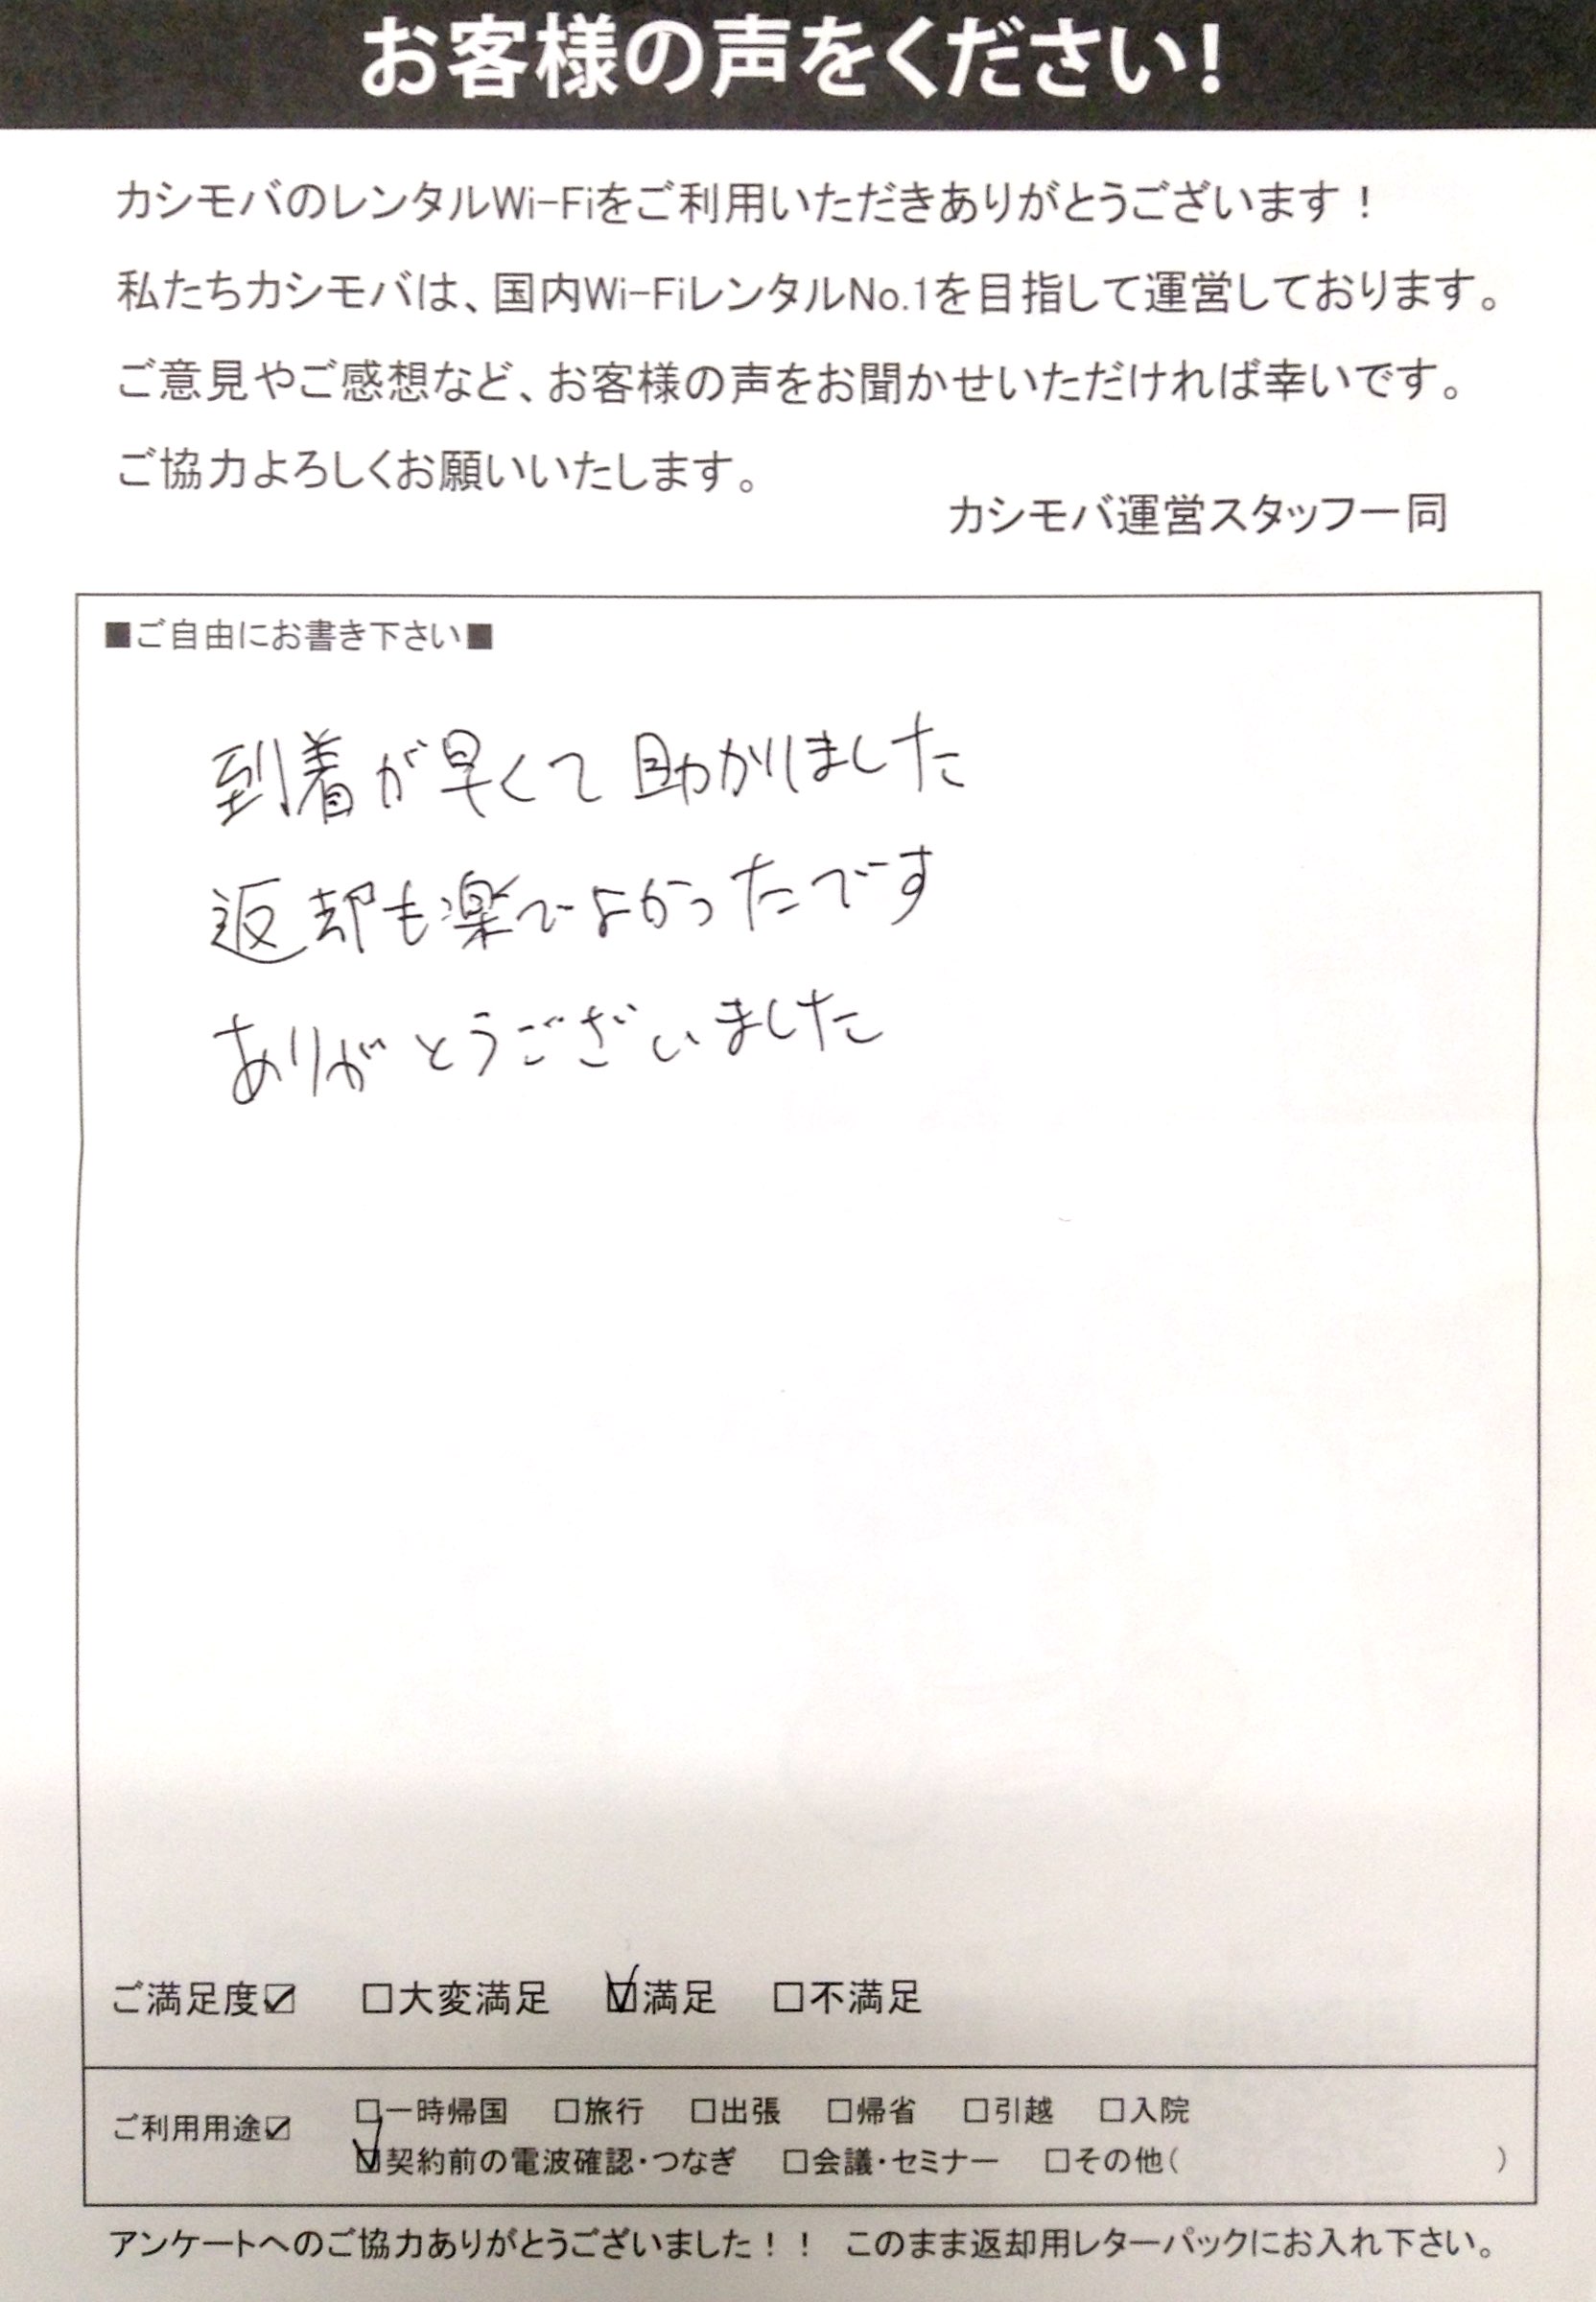 お客様の声をください!
カシモバのレンタルWi-Fiをご利用いただきありがとうございます！
私たちカシモバは、国内Wi-FiレンタルNo.1を目指して運営しております。
ご意見やご感想など、お客様の声をお聞かせいただければ幸いです。
ご協力よろしくお願いいたします。
カシモバ運営スタッフ一同
■ご自由にお書き下さい■
到着が早くて助かりました
返却も楽でよかったです
ありがとうございました
ご満足度☑ □大変満足 ☑満足 □不満足
ご利用用途☑ □一時帰国 □旅行 □出張 □帰省 □引越 □入院
☑契約前の電波確認・つなぎ □会議・セミナー □その他( )
アンケートへのご協力ありがとうございました！！ このまま返却用レターパックにお入れ下さい。